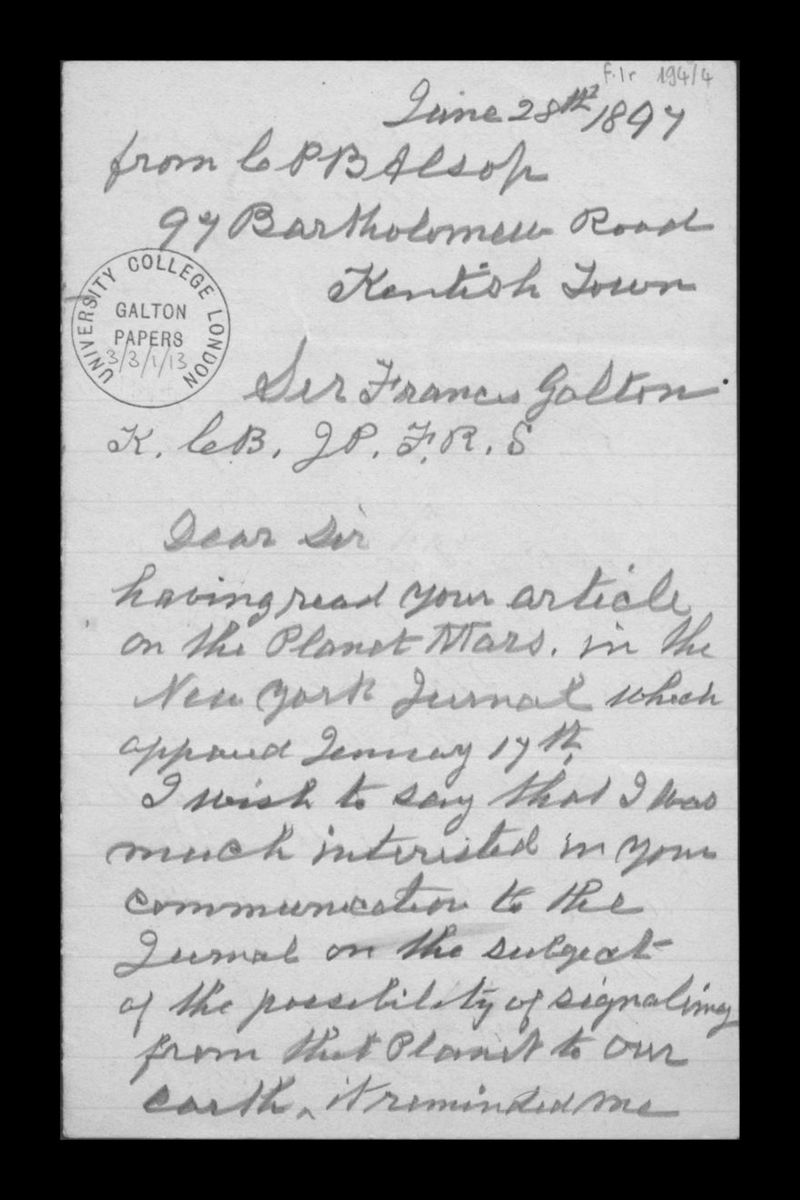 f.1r 194/4
June 28th 1897
from C P B Alsop
97 Bartholomew Road
Kentish Town
UNIVERSITY COLLEGE LONDON
GALTON
PAPERS
3/3/1/13
Sir Francis Galton
K. C B. J P. F. R. S
Dear Sir
having read your article
on the Planet Mars. in the
New York Jurnal which
appaued Jenuary 17th.
I wish to say that I was
much interested in your
communication to the
Jurnal on the subject
of the possibility of signaling
from that Planet to our
earth ‸ it reminded me